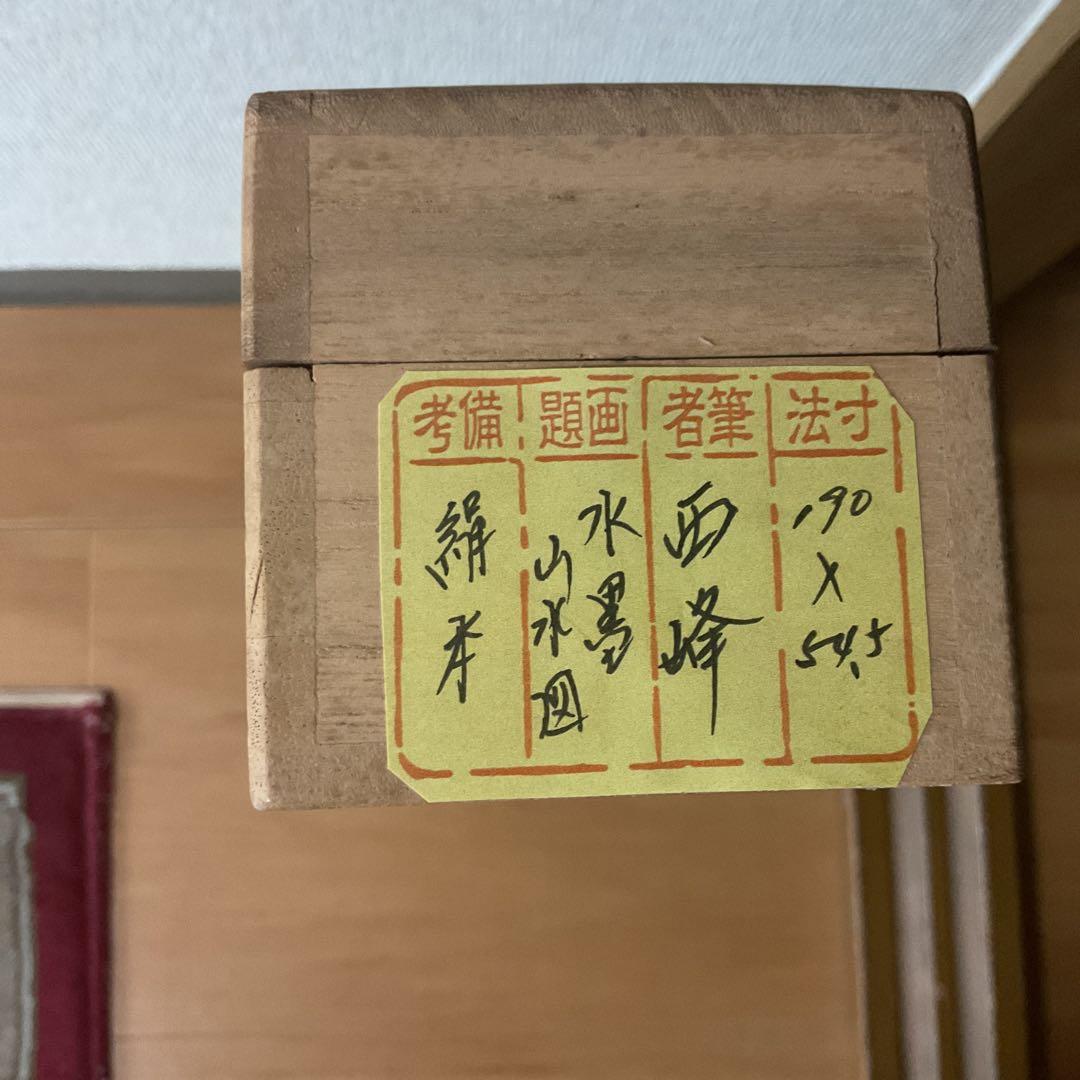 寸法
190
×
54.5
筆者
西峰
画題
水墨
山水図
備考
絹本